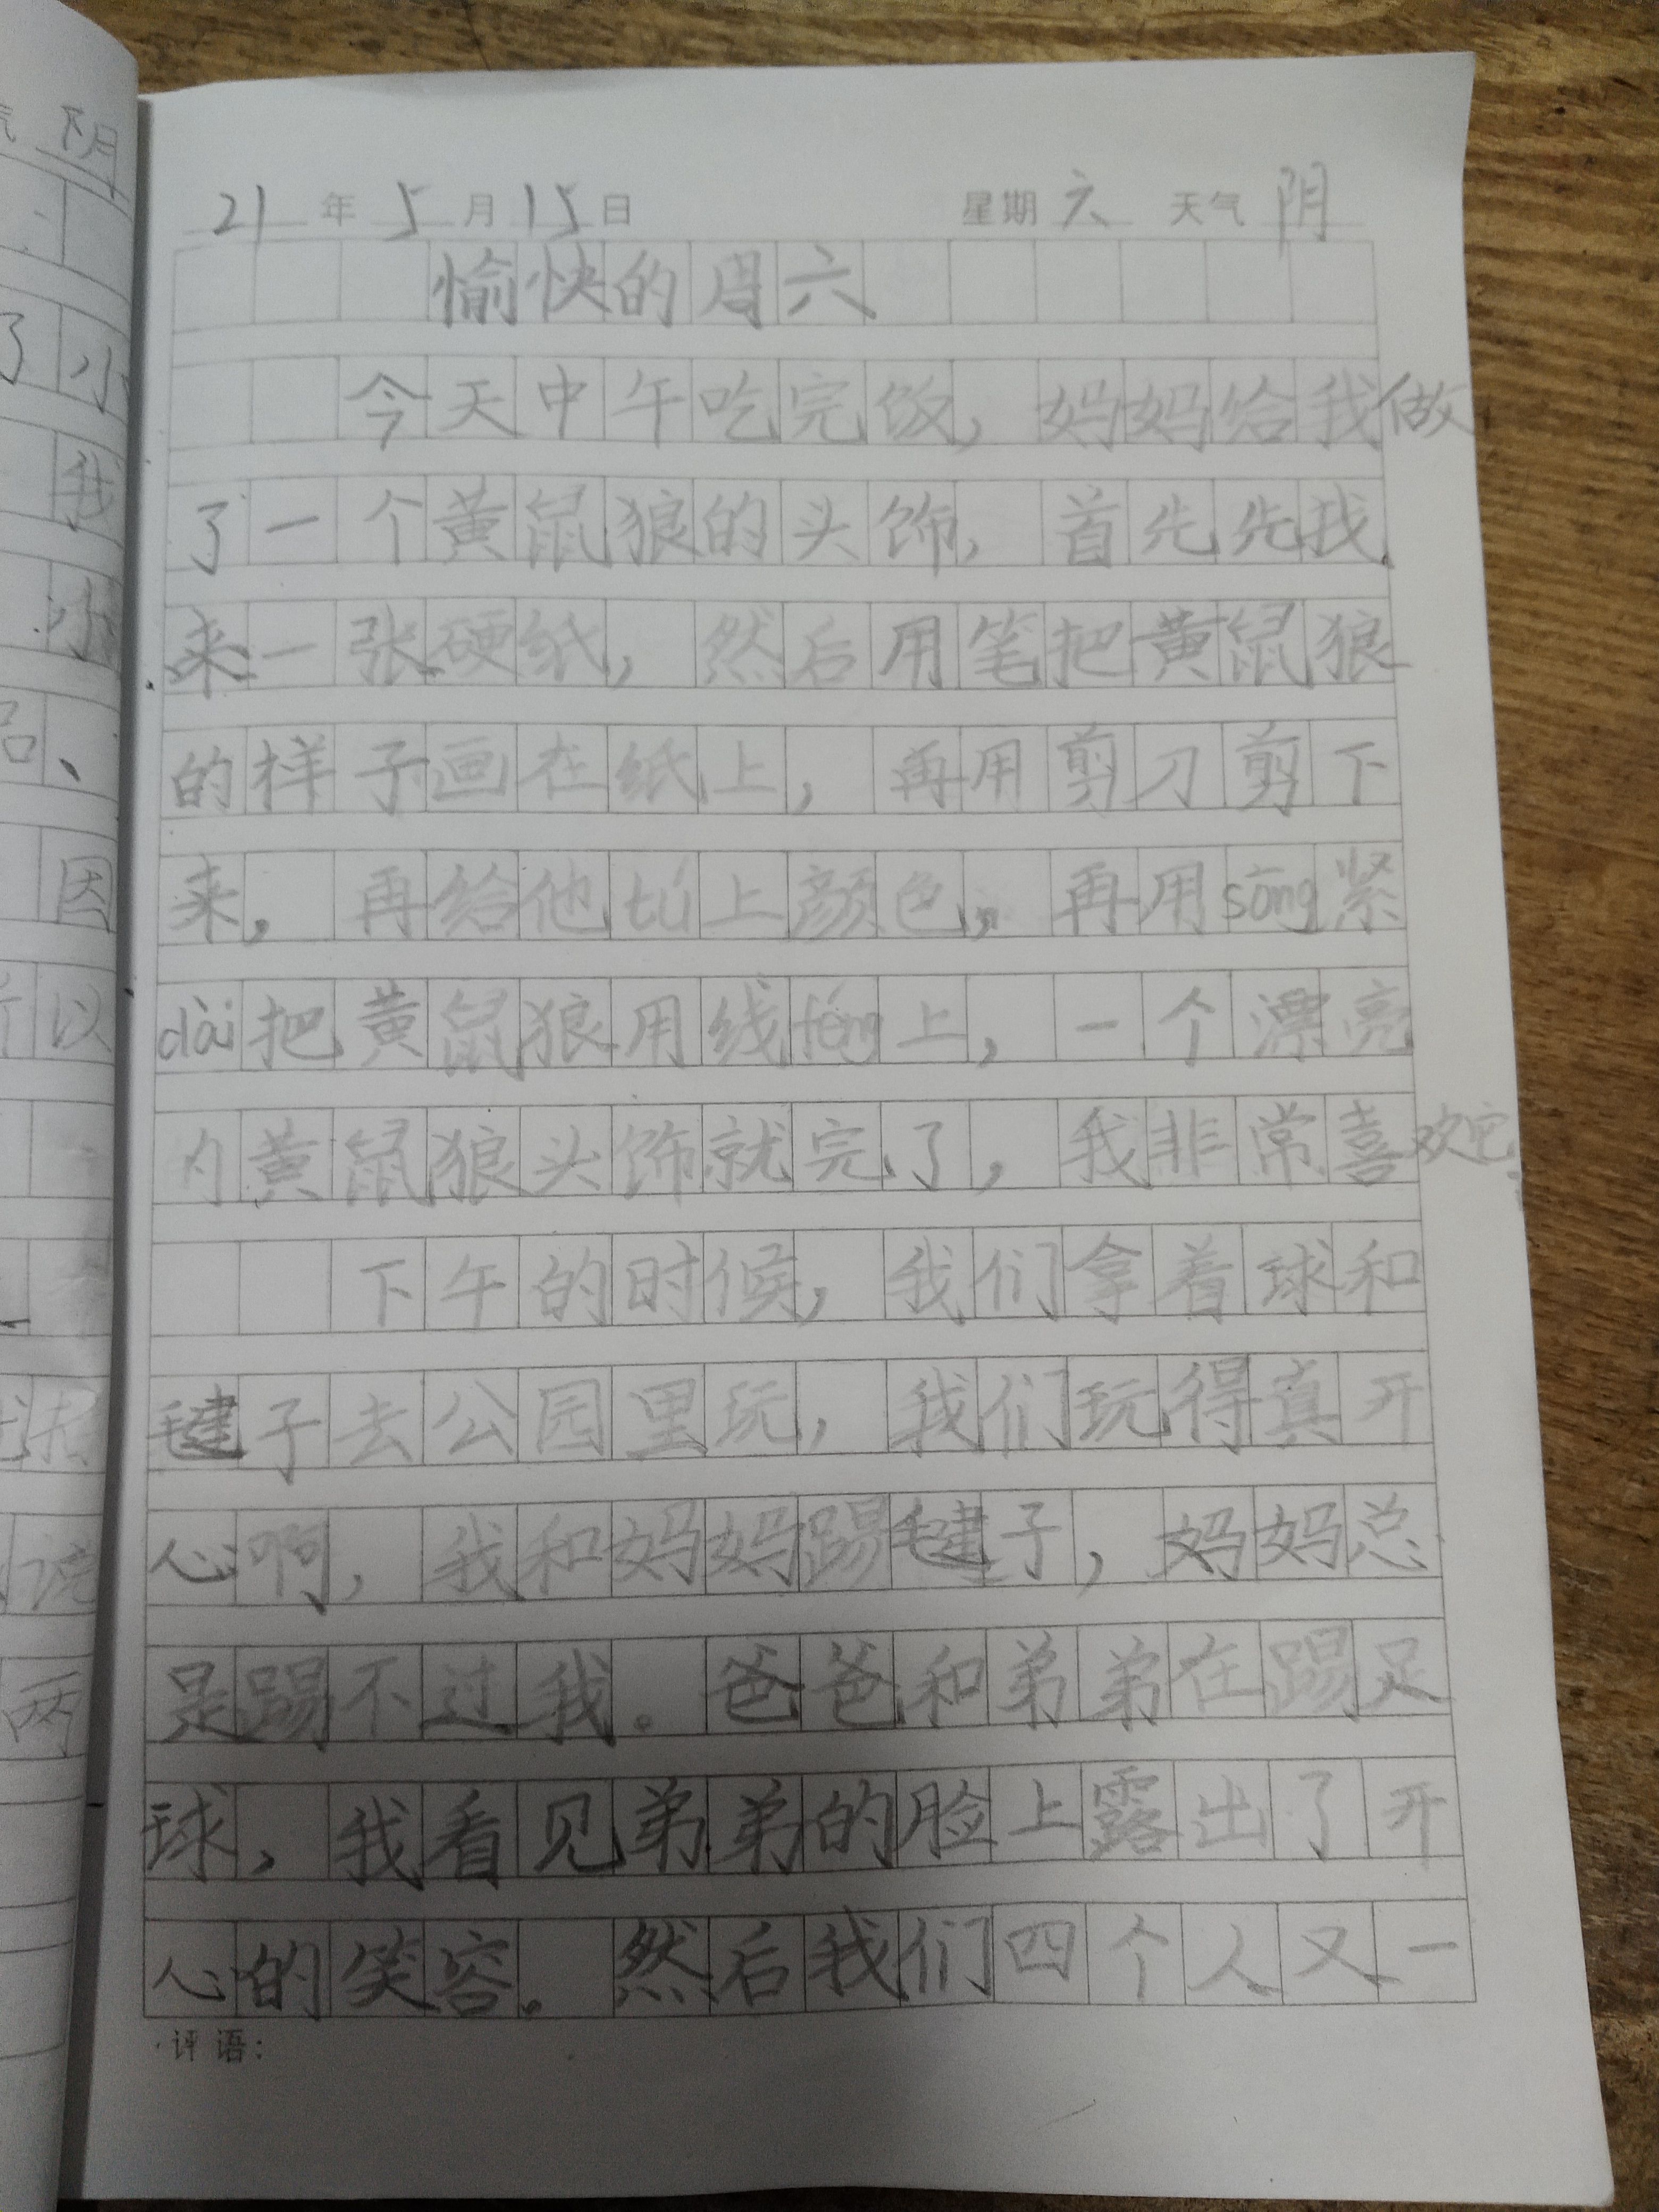 21年5月15日 星期六 天气阴
愉快的周六
今天中午吃完饭，妈妈给我做
了一个黄鼠狼的头饰，首先先我
来一张硬纸，然后用笔把黄鼠狼
的样子画在纸上，再用剪刀剪下
来，再给他tú上颜色，再用sōng紧
dài把黄鼠狼用线féng上，一个漂亮
的黄鼠狼头饰就完了，我非常喜欢它。
下午的时候，我们拿着球和
毽子去公园里玩，我们玩得真开
心啊，我和妈妈踢毽子，妈妈总
是踢不过我。爸爸和弟弟在踢足
球，我看见弟弟的脸上露出了开
心的笑容。然后我们四个人又一
评语：
阴
了小
我
小
品、
因
以
两